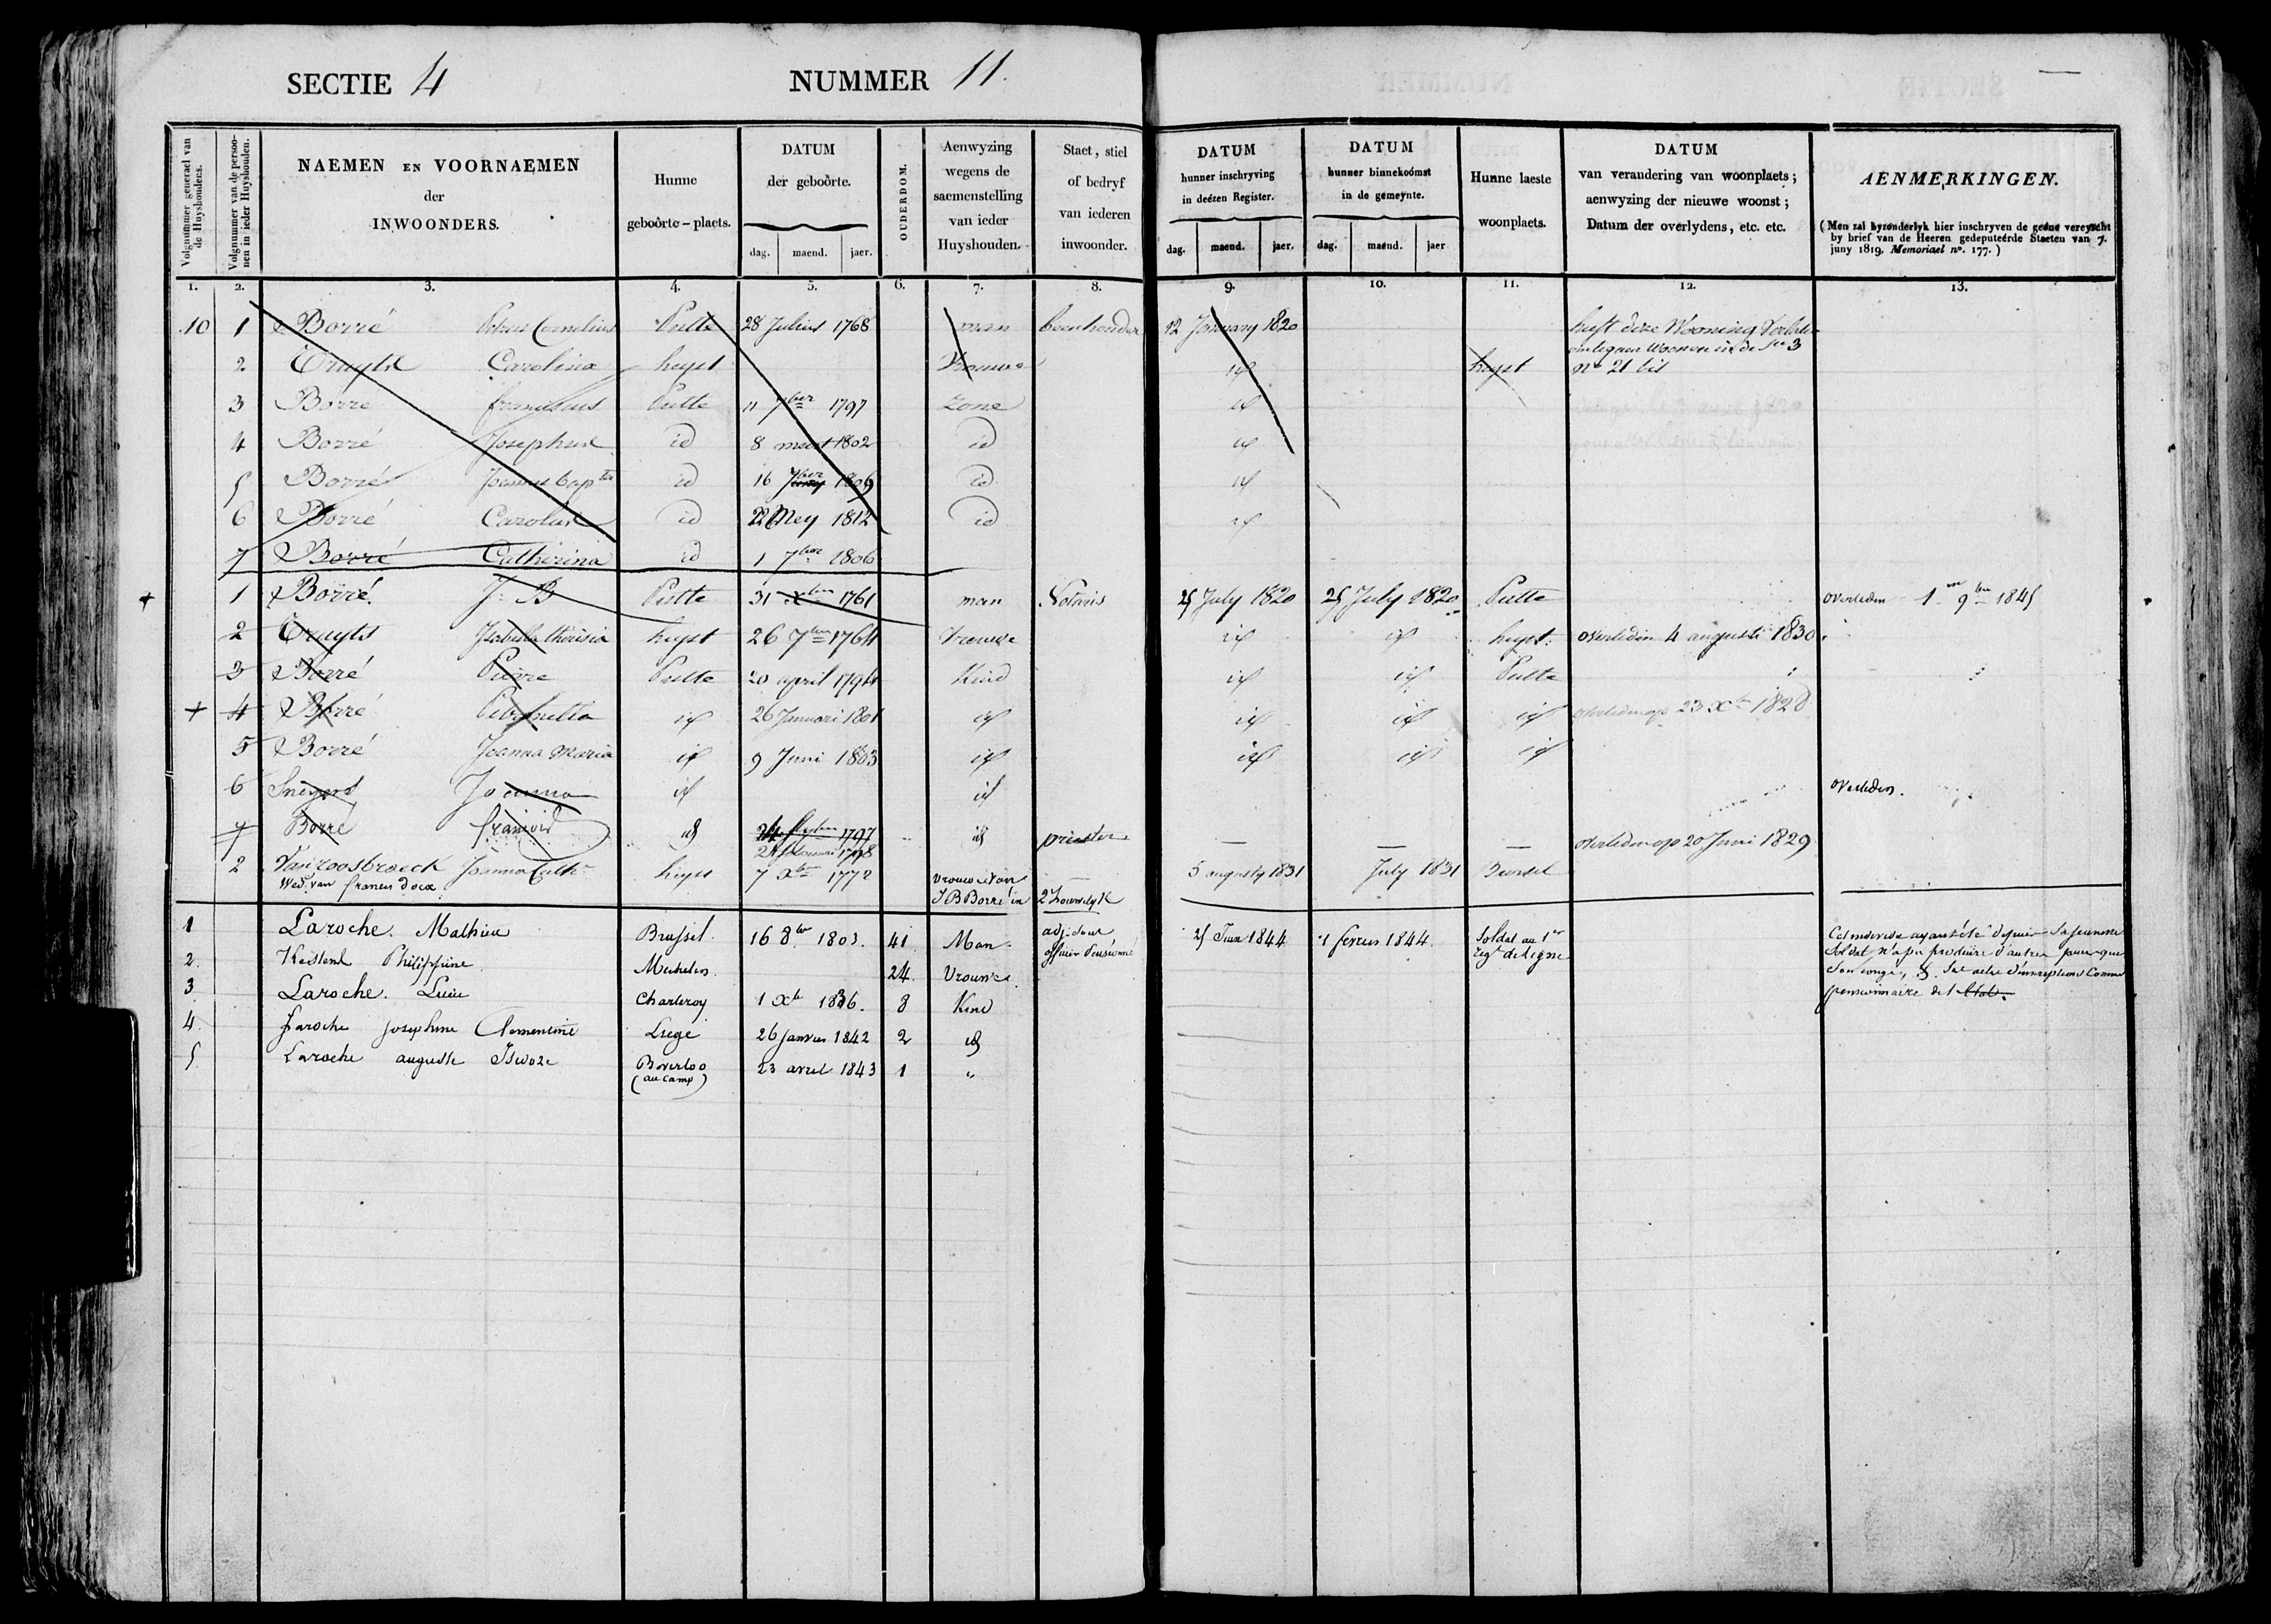 SECTIE 4 NUMMER 11.
Volgnummer generael van de Huyshoudens.
Volgnummer van de persoonen in ieder Huyshouden.
NAEMEN EN VOORNAEMEN
der
INWOONDERS.
Hunne
geboôrte-plaets.
DATUM
der geboôrte.
dag. maend. jaer.
OUDERDOM.
Aenwyzing
wegens de
saemenstelling
van ieder
Huyshouden.
Staet, stiel
of bedryf
van iederen
inwoonder.
DATUM
hunner inschryving
in deézen Register.
dag. maend. jaer.
DATUM
hunner binnekoómst
in de gemeynte.
dag. maend. jaer
Hunne laeste
woonplaets.
DATUM
van verandering van woonplaets;
aenwyzing der nieuwe woonst;
Datum der overlydens, etc. etc.
AENMERKINGEN.
(Men zal byzonderlyk hier inschryven de geéne vereyscht
by brief van de Heeren gedeputeérde Staeten van 7.
juny 1819. Memoriael nº. 177.)
1. 2. 3. 4. 5. 6. 7. 8. 9. 10. 11. 12. 13.
10 1 Borré Petrus Cornelius Putte 28 Julius 1768 man 12 January 1820 heeft deze Wooning
2 Carolina heyst Vrouwe id heyst nº 21 bis
3 Borre franciscus Putte 11 7ber 1797 zone id
4 Borré Josephus id 8 meert 1802 id id
5 Borré Joannes Bapta id 16 7ber 1809 id id
6 Borré Carolus id 22 Mey 1812 id id
7 Borré Catherina id 1 7ber 1806
1 Borré J. B Putte 31 Xber 1761 man Notaris 25 July 1820 25 July 1820 Putte overleden 1 9bre 1845
2 Isabella theresia heyst 26 7ber 1764 Vrouwe id id heyst. overleden 4 augusti 1830
3 Borré Pierre Putte 20 april 1794 Kind id id Putte
+ 4 Borré Petronella id 26 Januari 1801 id id id id overleden op 23 Xbr 1828
5 Borré Joanna Maria id 9 Juni 1803 id id id id
6 Joanna id id overleden.
7 Borré françois id 24 1797 id priester overleden op 20 Juni 1829
1798
2 Van roosbroeck Joanna Cath. heyst 7 Xbre 1772 vrouwe van 5 augusty 1831 July 1831
Wed. van francis Docx J B Borré in 2 houwelyk
1 Laroche. Mathieu Brussel. 16 8bre 1803. 41 Man. 25 Juin 1844 1 fevrier 1844. Soldat au 1er Cet individu ayant été depuis sa jeunesse
officier Pensionné regt de Ligne Soldat, n'a pu produire d'autres pour que
2. Philippine Mechelen. 24. Vrouwe. son congé, & son acte d'inscription comme
3 Laroche. Lucie Charleroy 1 Xbre 1836. 8 Kind pensionnaire de l'Etat.
4. Laroche Josephine Clementine Liege 26 Janvier 1842 2 id
5. Laroche auguste Isidore Beverloo 23 avril 1843 1 "
(au camp)